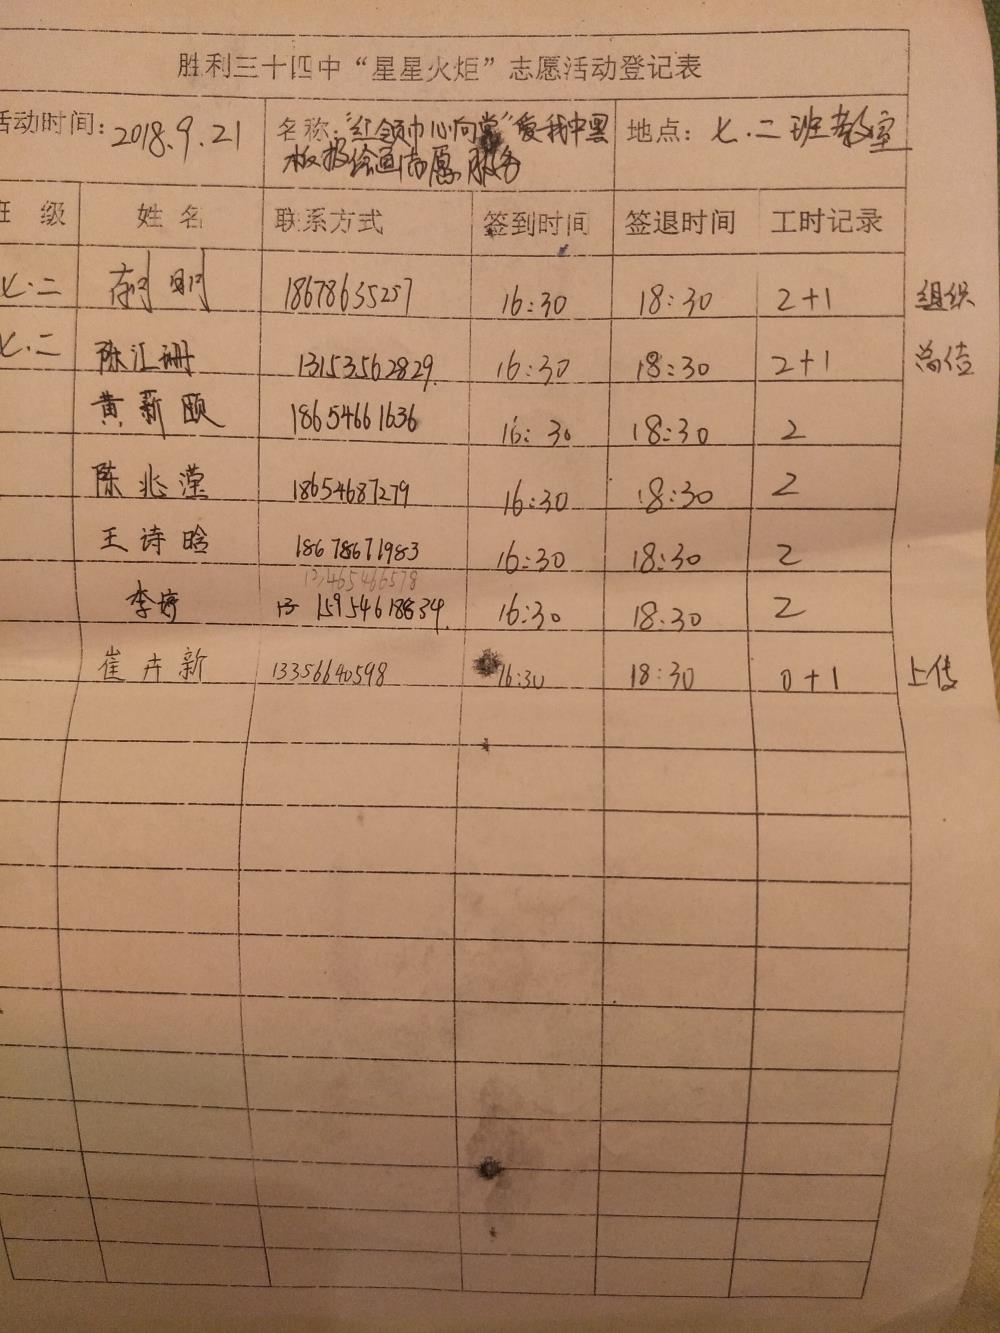 胜利三十四中“星星火炬”志愿活动登记表
活动时间: 2018.9.21 名称: “红领巾心向党”爱我中 黑 地点: 七.二班教室
板报绘画志愿服务
班 级 姓 名 联系方式 签到时间 签退时间 工时记录
七.二 18678635257 16:30 18:30 2+1 组织
七.二 陈汇珊 13153562829 16:30 18:30 2+1
黄新颐 18654661636 16:30 18:30 2
陈兆滢 18654687279 16:30 18:30 2
王诗晗 18678671983 16:30 18:30 2
李婷 15954618834 16:30 18:30 2
崔卉新 13356640598 16:30 18:30 0+1 上传